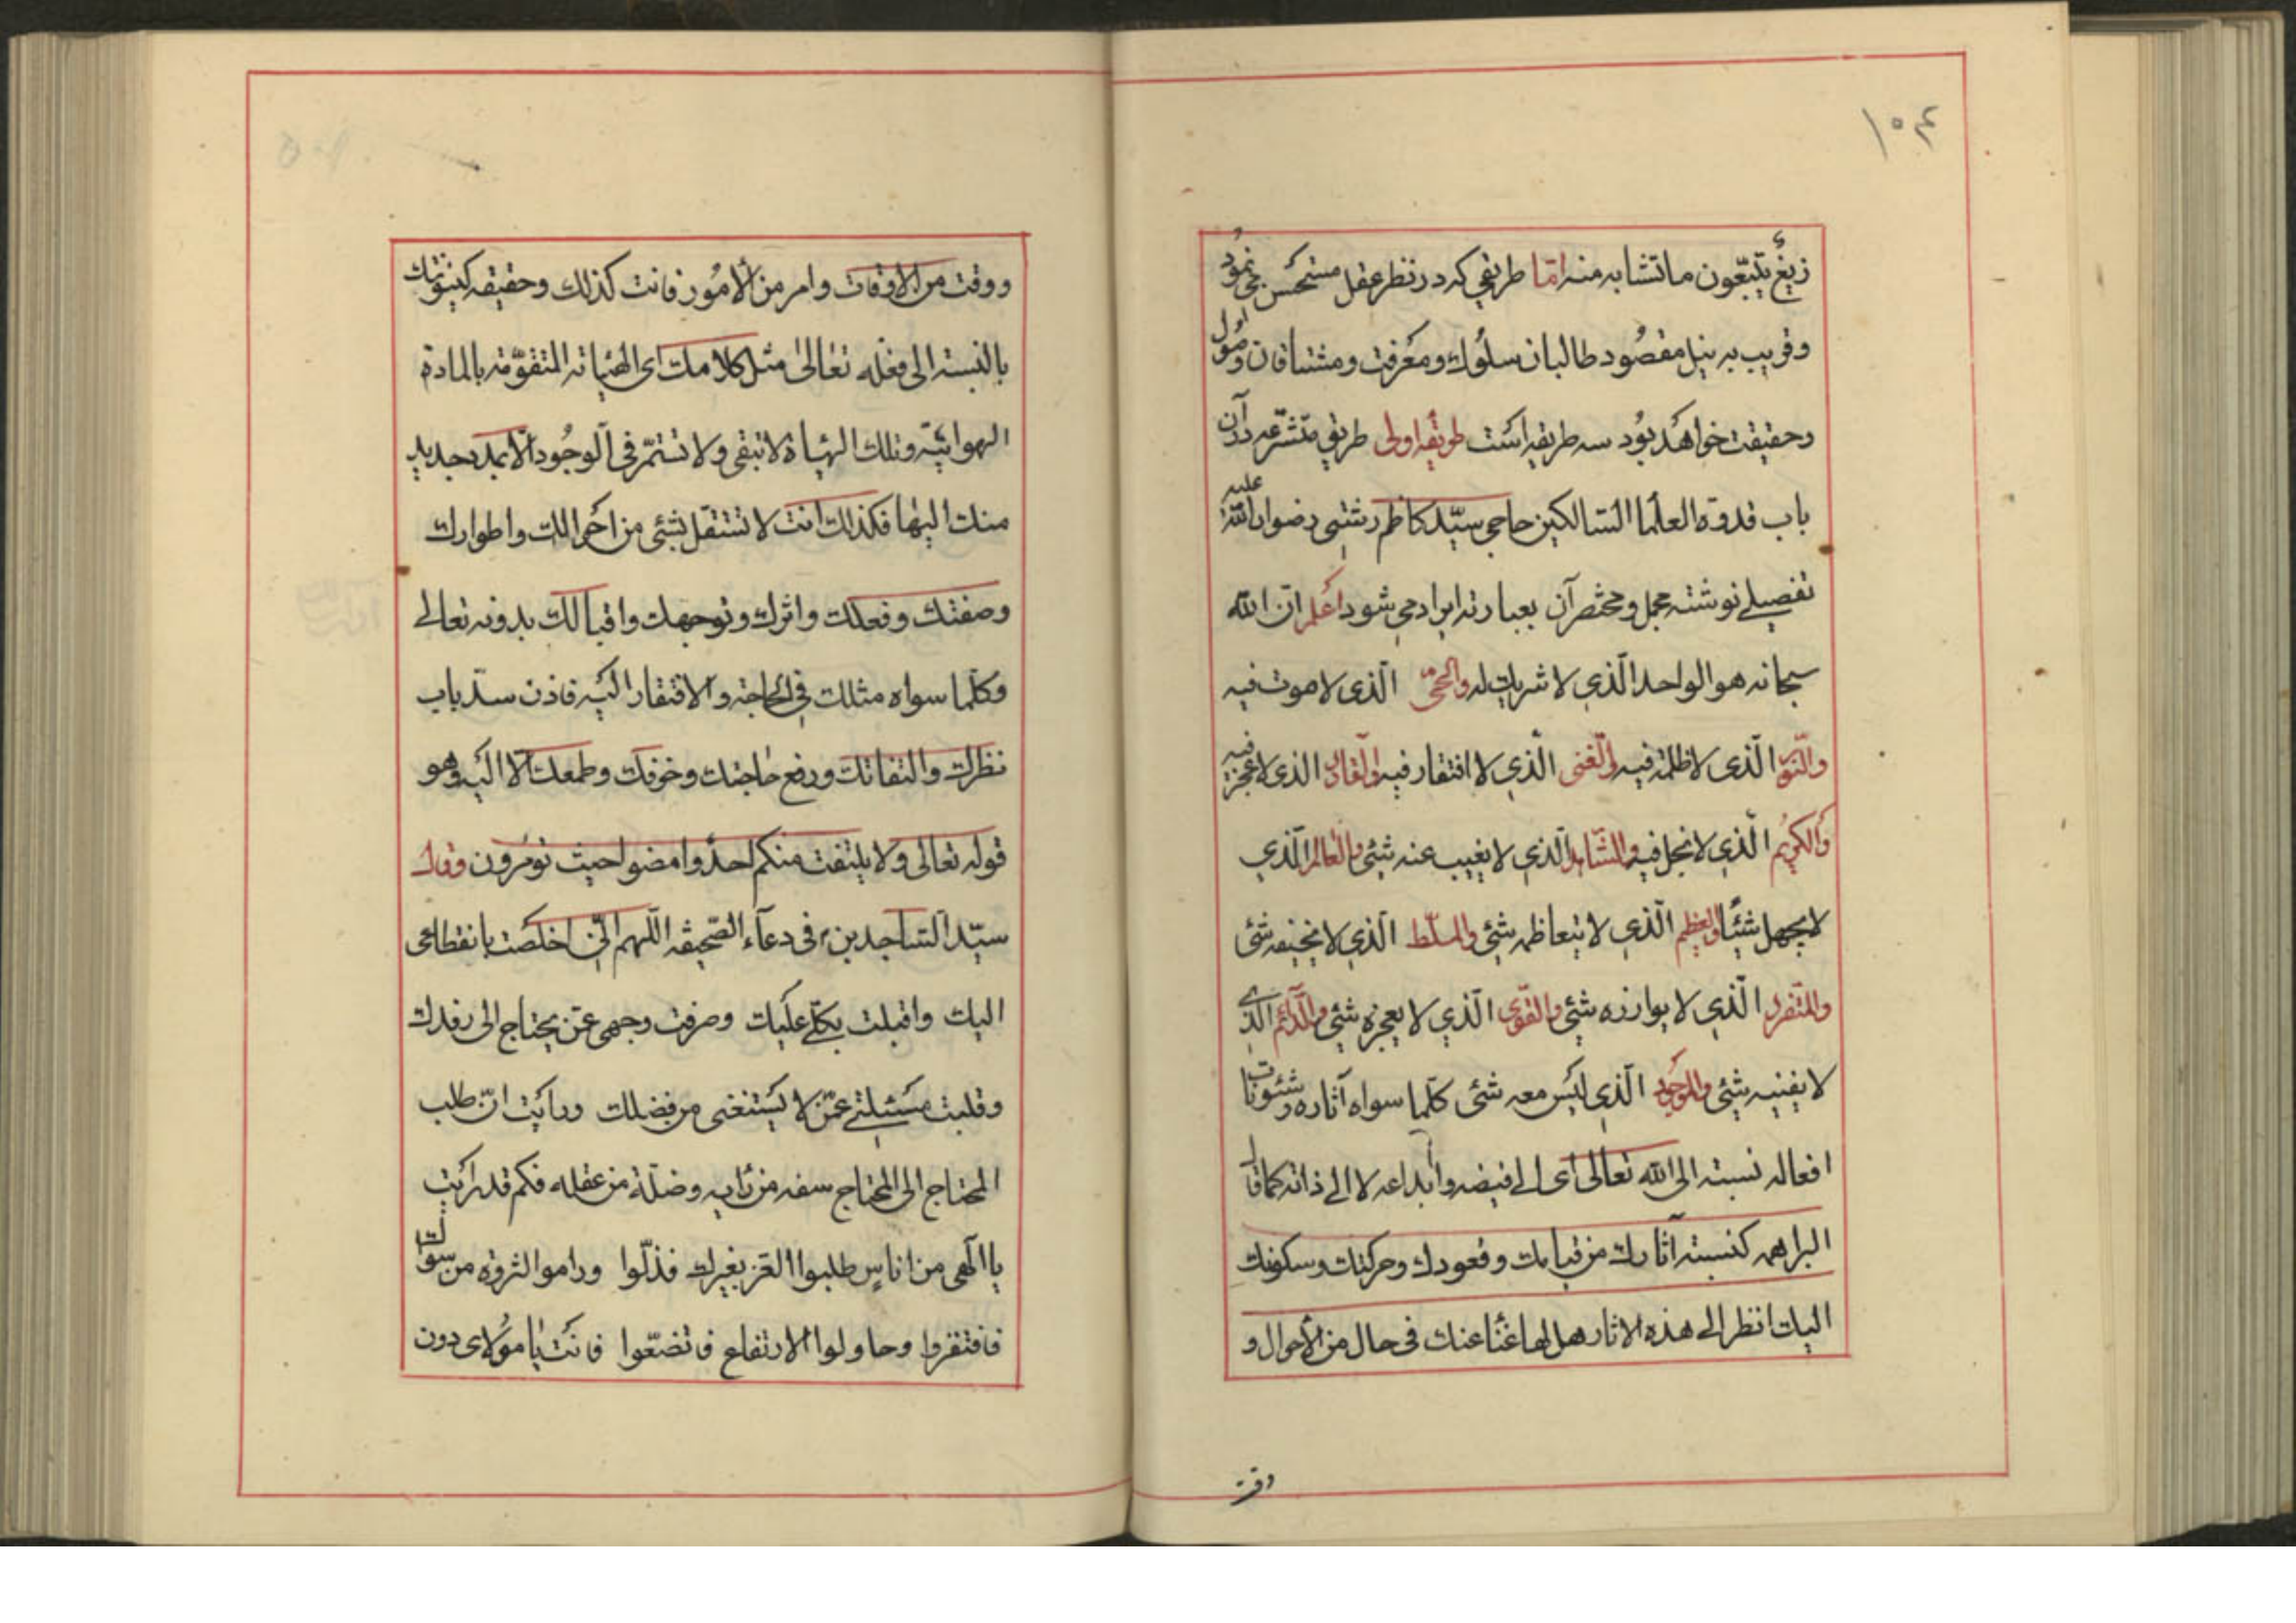 ۱۰۴
زیغٌ یتّبعون ما تشابه منه امّا طریقی که در نظر عقل مستحسن می نمود
و قریب به نیل مقصُود طالبان سلُوك و معرفت و مشتاقان وصُول
و حقیقت خواهد بُود سه طریقه است طریقهٔ اولی طریق متشرّعه در آن
باب قدوة العلما السالکین حاجی سیّد کاظم رشتی رضوان الله علیه
تفصیلے نوشته مجمل و مختصر آن بعبارته ایراد می شود اعلم انّ الله
سبحانه هو الواحد الّذی لا شریك له والحیّ الّذی لا موت فیه
والنّور الّذی لا ظلمة فیه والغنی الّذی لا افتقار فیه والقادر الذی لا عجز فیه
والکریم الّذی لا بخل فیه والشّاهد الّذی لا یغیب عنه شیٔ والعالم الّذی
لا یجهل شیئًا والعظیم الّذی لا یتعاظمه شیٔ والمسلّط الّذی لا یخیفه شیٔ
والمتفرد الّذی لا یوازره شیٔ والقوّی الّذی لا یعجزه شیٔ والدّائم الّذی
لا یفنیه شیٔ والموجود الّذی لیس معه شیٔ کلّما سواه آثاره و شئونات
افعاله نسبته الی الله تعالی ای الے فیضه و ابداعه لا الے ذاته کما قال
البراهمه کنسبته آثارك من قیامك و قعودك و حرکتك و سکونك
الیك انظر الے هذه الاثار هل لها غنًا عنك فی حال من الأحوال و
وقت
و وقت من الاوقات و امر من الأمُور فانت کذلك و حقیقه کینونتك
بالنسبته الی فعله تعالیٰ مثل کلامك ای الهیٔاته المتقوّمة بالمادة
الهوائیّه و تلك الهیٔاة لا تبقی و لا تستمّر فی الوجُود الّا بمدد جدید
منك الیٰها فکذلك انت لا تستقل بشیٔ من احوالك و اطوارك
و صفتك و فعلك و اثرك و توجهك و اقبالك بدونه تعالے
و کلّما سواه مثلك فی الحاجته و الافتقار الیه فاذن سدّ باب
نظرك و التفاتك و رفع حاجتك و خوفك و طمعك الّا الیه و هو
قوله تعالی و لا یلتفت منکم احدٌ و امضوا حیث تؤمرون و قال
سیّد السّاجدین ع فی دعآء الصّحیفه اللّهم انّی اخلصت بانقطاعی
الیك و اقبلت بکلّے علیك و صرفت وجهی عمّن یحتاج الی رفدك
و قلبت مسئلتے عمّن لا یستغنی من فضلك و رأیت انّ طلب
المحتاج الی المحتاج سفه من رأیه و ضلّة من عقله فکم قد رأیت
یا الٓهی من اناسٍ طلبوا العّز بغیرك فذلّوا و راموا الثروة من سواك
فافتقروا و حاولوا الارتفاع فاتضعّوا فانت یا موُلای دون